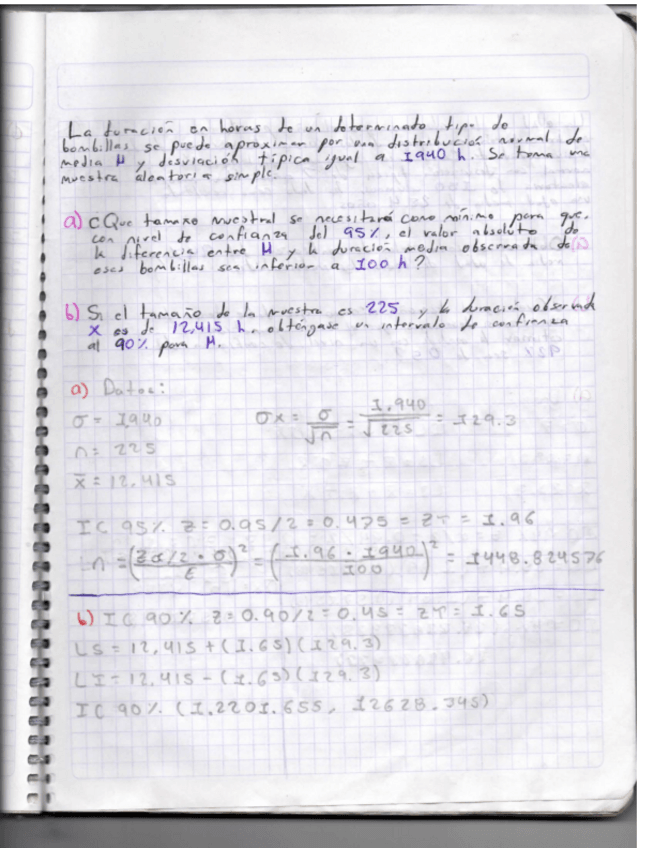 La duración en horas de un determinado tipo de
bombillas se puede aproximar por una distribución normal de
media μ y desviación típica igual a 1940 h. Se toma una
muestra aleatoria simple.
a) ¿Que tamaño muestral se necesitará como mínimo para que,
con nivel de confianza del 95%, el valor absoluto de
la diferencia entre μ y la duración media observada de
esas bombillas sea inferior a 100 h?
b) Si el tamaño de la muestra es 225 y la duración observada
x es de 12,415 h. obténgase un intervalo de confianza
al 90% para μ.
a) Datos:
σ = 1940
σx = σ/√n = 1,940/√225 = 129.3
n = 225
x̄ = 12,415
IC 95% Z = 0.95/2 = 0.475 = ZT = 1.96
n = (Zα/2 · σ / E)² = (1.96 · 1940 / 100)² = 1448.824576
b) IC 90% Z = 0.90/2 = 0.45 = ZT = 1.65
LS = 12,415 + (1.65)(129.3)
LI = 12,415 - (1.65)(129.3)
IC 90% (1.2201.655, 12628.345)